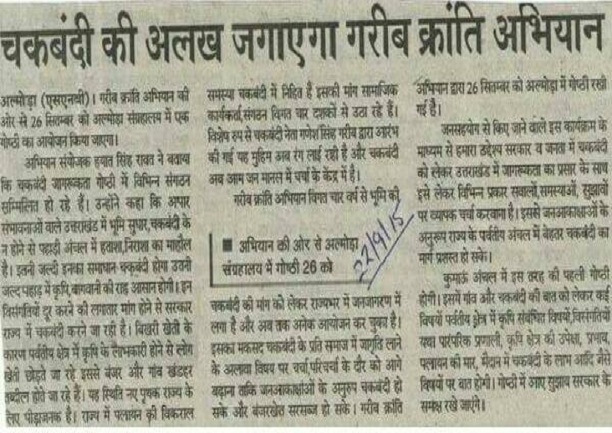 चकबंदी की अलख जगाएगा गरीब क्रांति अभियान
अल्मोड़ा (एसएनबी)। गरीब क्रांति अभियान की
ओर से 26 सितम्बर को अल्मोड़ा संग्रहालय में एक
गोष्ठी का आयोजन किया जाएगा।
अभियान संयोजक हयात सिंह रावत ने बताया
कि चकबंदी जागरूकता गोष्ठी में विभिन्न संगठन
सम्मिलित हो रहे हैं। उन्होंने कहा कि अपार
संभावनाओं वाले उत्तराखंड में भूमि सुधार,चकबंदी के
न होने से पहाड़ी अंचल में हताशा,निराशा का माहौल
है। इतनी जल्दी इनका समाधान चकबंदी होगा उतनी
जल्द पहाड़ में कृषि बागवानी की राह आसान होगी। इन
विसंगतियों दूर करने की लगातार मांग होने से सरकार
राज्य में चकबंदी करने जा रही है। बिखरी खेती के
कारण पर्वतीय क्षेत्र में कृषि के लाभकारी होने से लोग
खेती छोड़ते जा रहे हैं इससे बंजर और गांव खंडहर
तब्दील होते जा रहे हैं। यह स्थिति नए पृथक राज्य के
लिए पीड़ाजनक है। राज्य में पलायन की विकराल
समस्या चकबंदी में निहित है इसकी मांग सामाजिक
कार्यकर्ता,संगठन विगत चार दशकों से उठा रहे हैं।
विशेष रुप से चकबंदी नेता गणेश सिंह गरीब द्वारा आरंभ
की गई यह मुहिम अब रंग लाई रही है और चकबंदी
अब आम जन मानस में चर्चा के केंद्र में है।
गरीब क्रांति अभियान विगत चार वर्ष से भूमि की
■ अभियान की ओर से अल्मोड़ा
संग्रहालय में गोष्ठी 26 को
22/9/15
चकबंदी की मांग को लेकर राज्यभर में जनजागरण में
लगा है और अब तक अनेक आयोजन कर चुका है।
इसका मकसद चकबंदी के प्रति समाज में जागृति लाने
के अलावा विषय पर चर्चा,परिचर्चा के दौर को आगे
बढ़ाना ताकि जनआकांक्षाओं के अनुरुप चकबंदी हो
सके और बंजरखेत सरसब्ज हो सके। गरीब क्रांति
अभियान द्वारा 26 सितम्बर को अल्मोड़ा में गोष्ठी रखी
गई है।
जनसहयोग से किए जाने वाले इस कार्यक्रम के
माध्यम से हमारा उद्देश्य सरकार व जनता में चकबंदी
को लेकर उत्तराखंड में जागरूकता का प्रसार के साथ
इसे लेकर विभिन्न प्रकार सवालों,समस्याओं, सुझाव
पर व्यापक चर्चा करवाना है। इससे जनआकांक्षाओं के
अनुरूप राज्य के पर्वतीय अंचल में बेहतर चकबंदी का
मार्ग प्रशस्त हो सके।
कुमाऊं अंचल में इस तरह की पहली गोष्ठी
होगी। इसमें गांव और चकबंदी की बात को लेकर कई
विषयों पर्वतीय क्षेत्र में कृषि संबंधित विषयों,विसंगतियों
यथा पारंपरिक प्रणाली, कृषि क्षेत्र की उपेक्षा, प्रभाव,
पलायन की मार, मैदान में चकबंदी के लाभ आदि जैसे
विषयों पर बात होगी। गोष्ठी में आए सुझाव सरकार के
समक्ष रखे जाएंगे।